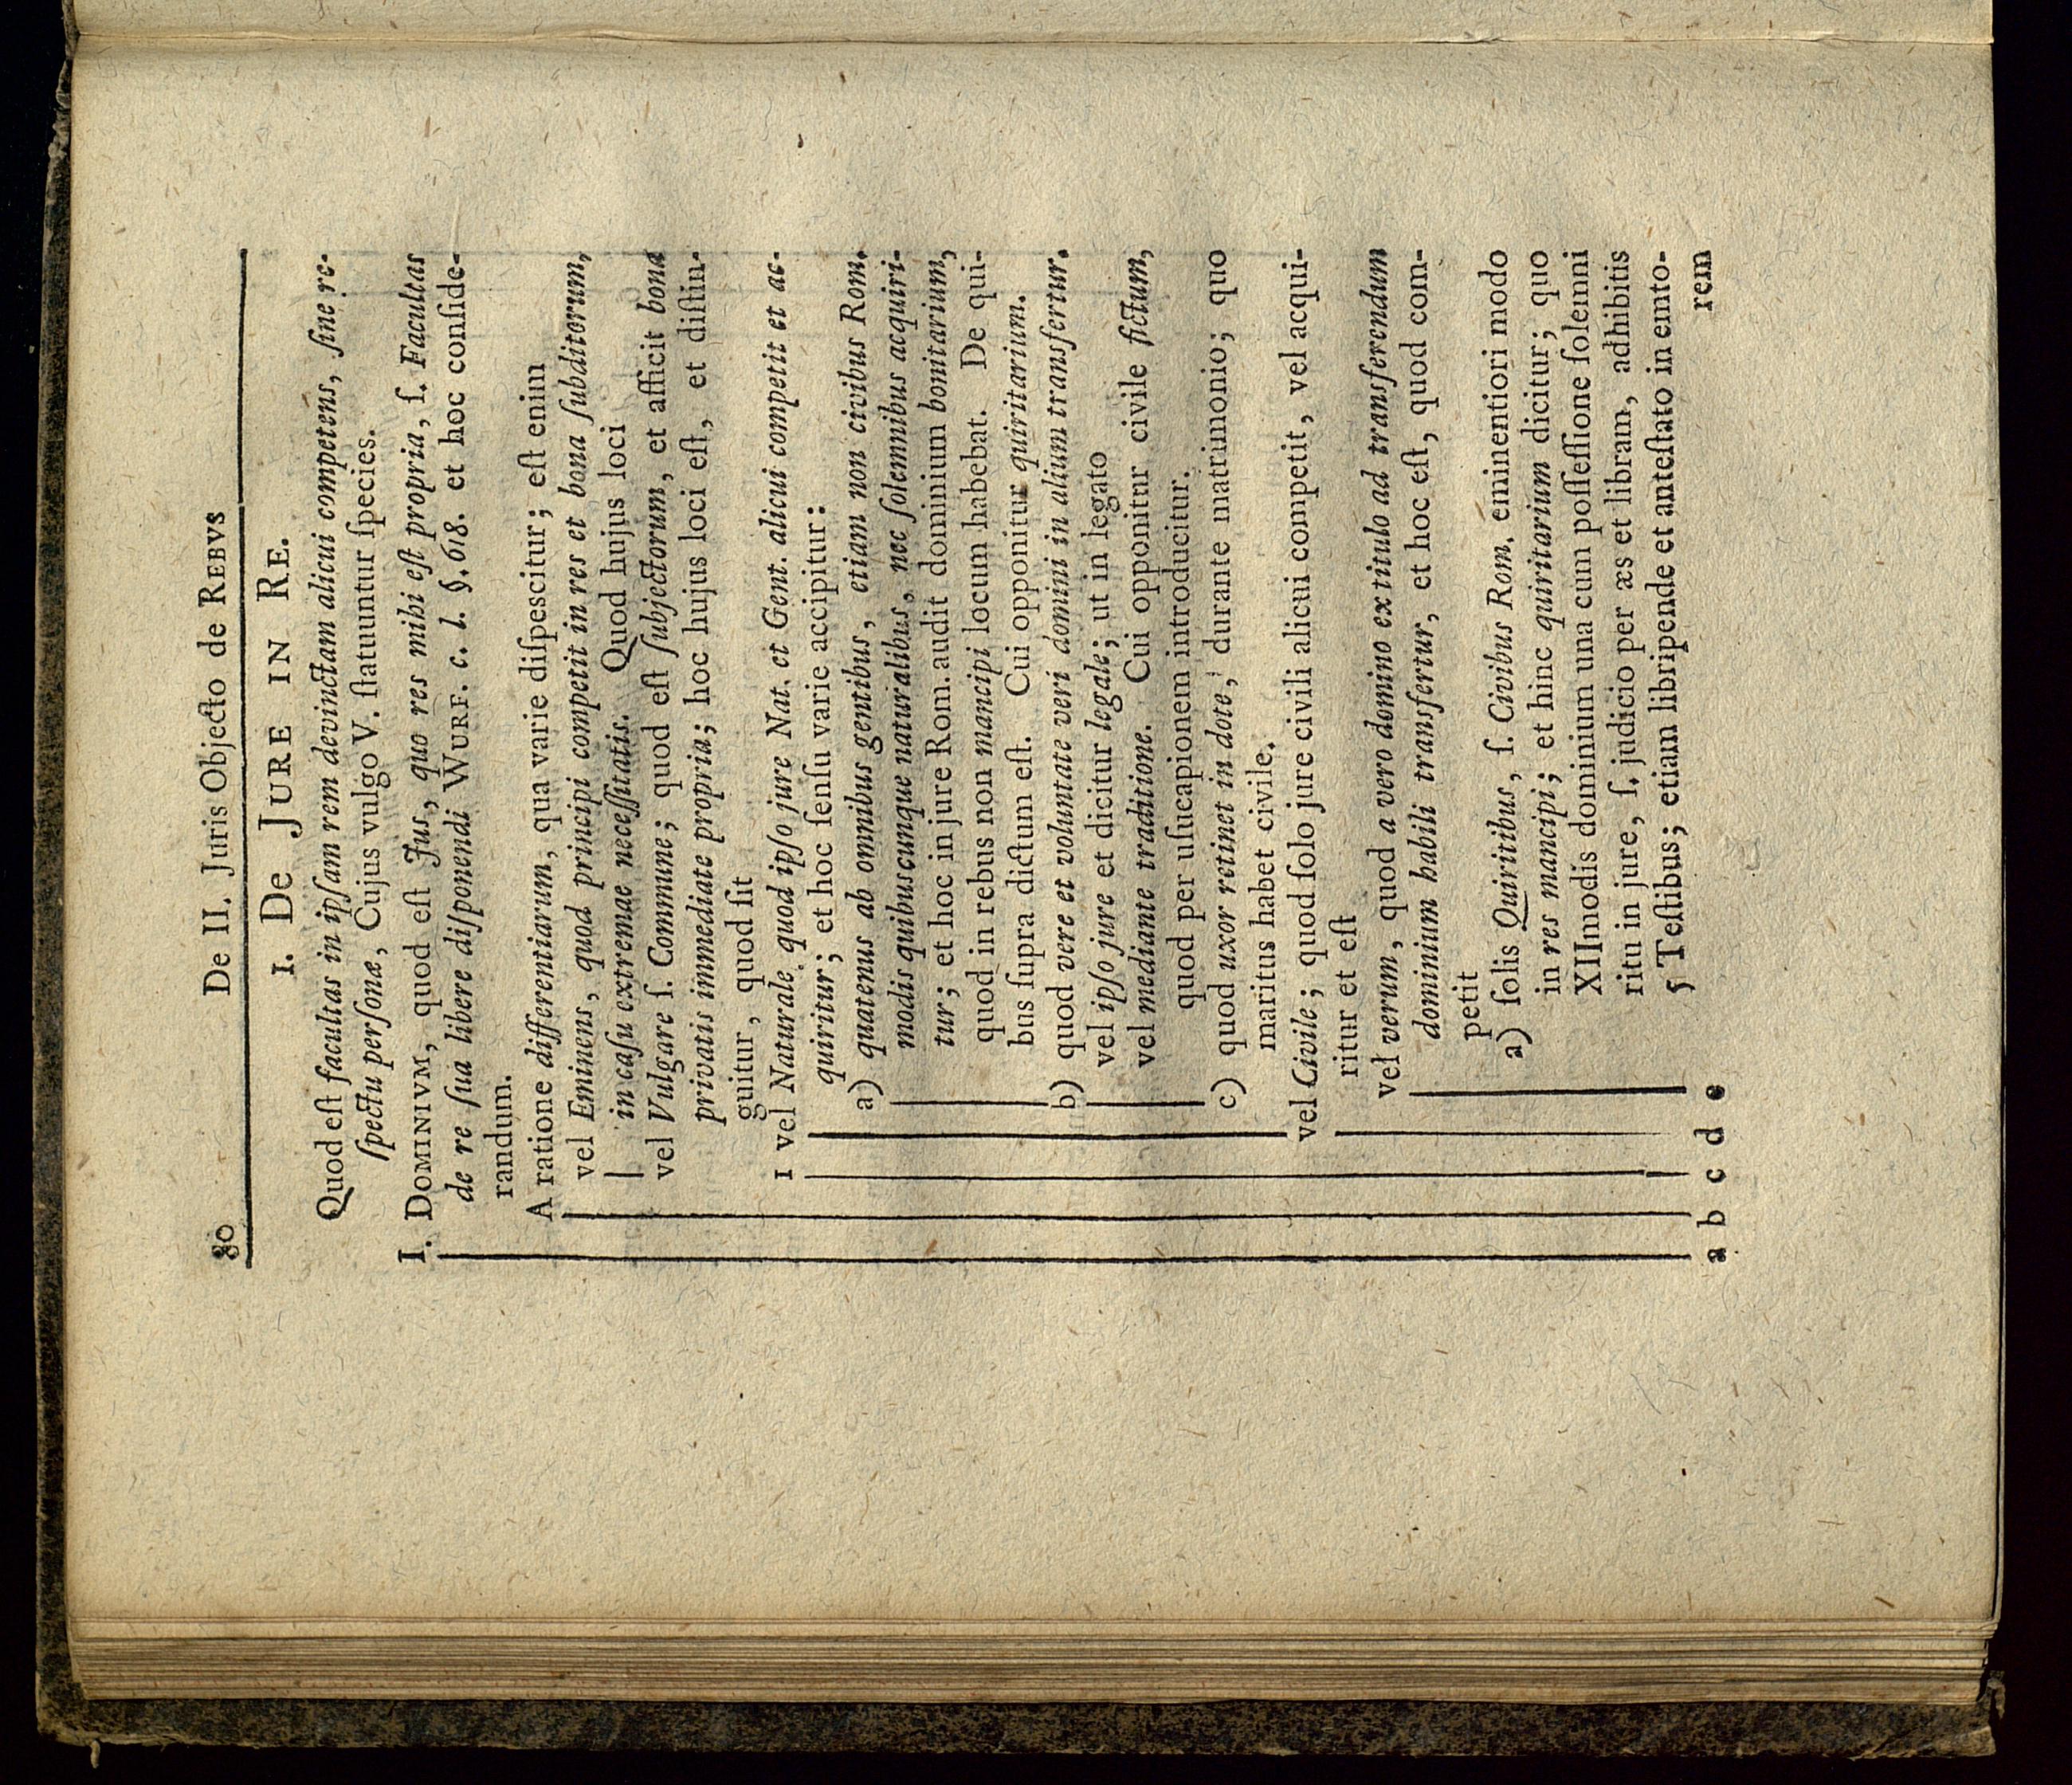 80 De II. Juris Objecto de REBVS
1. De JURE IN RE.
Quod eſt facultas in ipſam rem devinctam alicui competens, ſine re-
ſpectu perſonæ, Cujus vulgo V. ſtatuuntur ſpecies.
I. DOMINIVM, quod eſt Jus, quo res mihi eſt propria, ſ. Facultas
de re ſua libere diſponendi WURF. c. l. §. 618. et hoc conſide-
randum.
A ratione differentiarum, qua varie diſpescitur; eſt enim
vel Eminens, quod principi competit in res et bona ſubditorum,
in caſu extremae neceſſitatis. Quod hujus loci
vel Vulgare ſ. Commune; quod eſt ſubjectorum, et afficit bona
privatis immediate propria; hoc hujus loci eſt, et diſtin-
guitur, quod ſit
1 vel Naturale quod ipſo jure Nat. et Gent. alicui competit et ac-
quiritur; et hoc ſenſu varie accipitur:
a) quatenus ab omnibus gentibus, etiam non civibus Rom.
modis quibuscunque naturalibus, nec ſolemnibus acquiri-
tur; et hoc in jure Rom. audit dominium bonitarium,
quod in rebus non mancipi locum habebat. De qui-
bus ſupra dictum eſt. Cui opponitur quiritarium.
b) quod vere et voluntate veri domini in alium transfertur.
vel ipſo jure et dicitur legale; ut in legato
vel mediante traditione. Cui opponitnr civile fictum,
quod per uſucapionem introducitur.
c) quod uxor retinet in dote, durante matrimonio; quo
maritus habet civile.
vel Civile; quod ſolo jure civili alicui competit, vel acqui-
ritur et eſt
vel verum, quod a vero domino ex titulo ad transferendum
dominium habili transfertur, et hoc eſt, quod com-
petit
a) ſolis Quiritibus, ſ. Civibus Rom. eminentiori modo
in res mancipi; et hinc quiritarium dicitur; quo
XIImodis dominium una cum poſſeſſione ſolemni
ritu in jure, ſ. judicio per æs et libram, adhibitis
5 Teſtibus; etiam libripende et anteſtato in emto-
rem
a b c d e